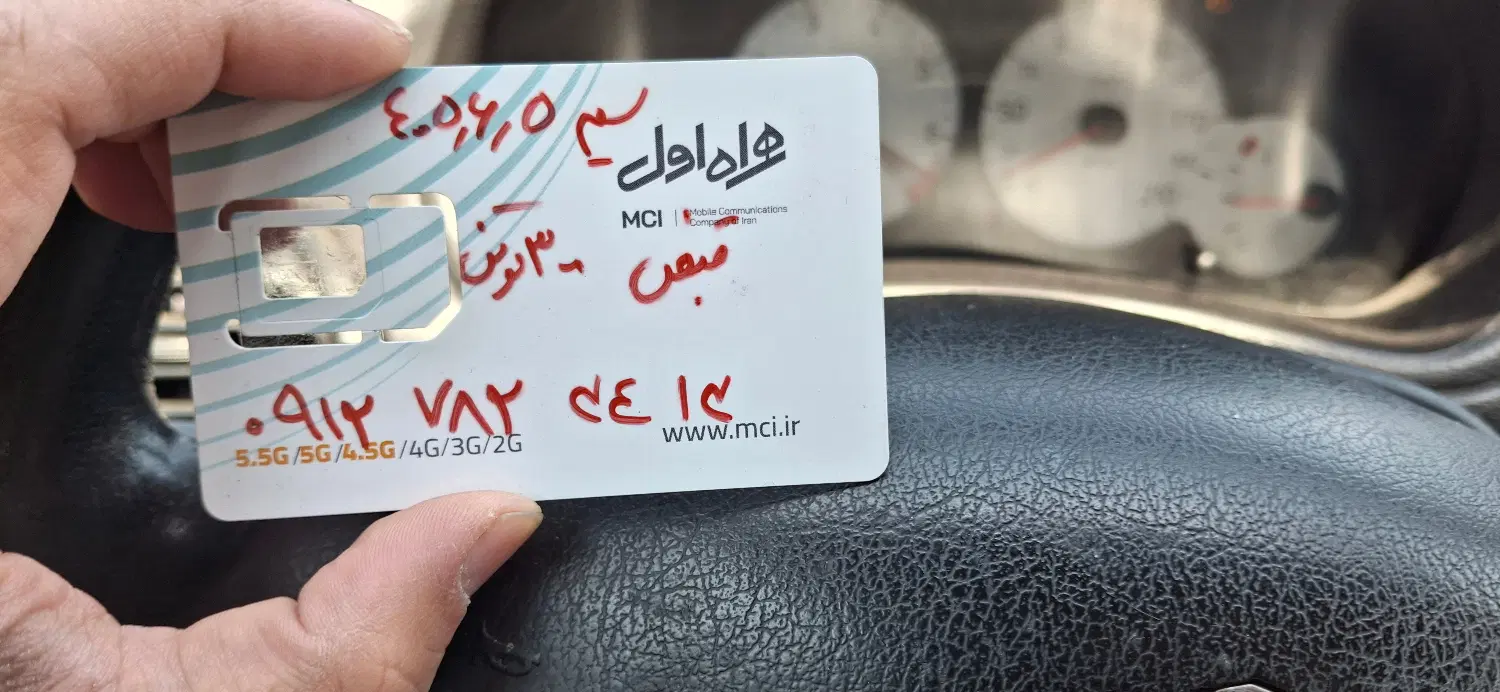 ٤٠۵,۶,۵
همراه اول
MCI | Mobile Communications
Company of Iran
قبض تومن
۰۹۱۲ ۷۸۲ ۴٤ ۱۴
5.5G/5G/4.5G/4G/3G/2G
www.mci.ir